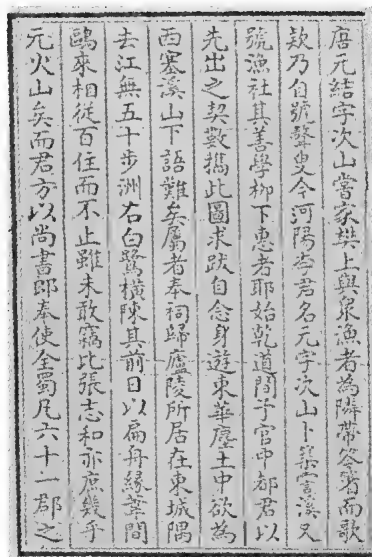 唐元結字次山嘗家樊上與衆漁者為隣帶笭箵而歌
欵乃自號聱叟今河陽李君名元字次山卜築雪溪又
號漁社其善學柳下惠者耶始乾道間予官中都君以
先出之契數攜此圖求跋自念身遊東華塵土中欲為
西塞溪山下語難矣屬者奉祠歸廬陵所居在東城隅
去江無五十步洲右白鷺橫陳其前日以扁舟緣葦間
鷗來相從百住而不止雖未敢竊比張志和亦庶幾乎
元次山矣而君方以尚書郎奉使全蜀凡六十一郡之